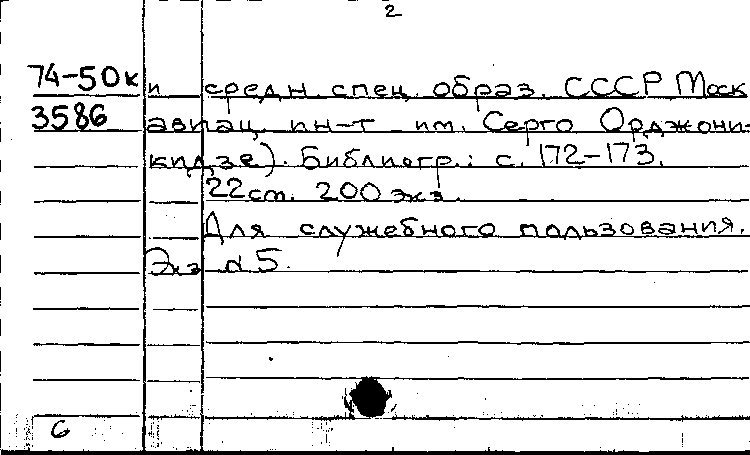 2
74-50к и средн. спец. образ. СССР Моск
3586 авиац. ин-т им. Серго Орджони-
кидзе). Библиогр.: с. 172-173.
22 см. 200 экз.
Для служебного пользования.
Экз № 5.
6